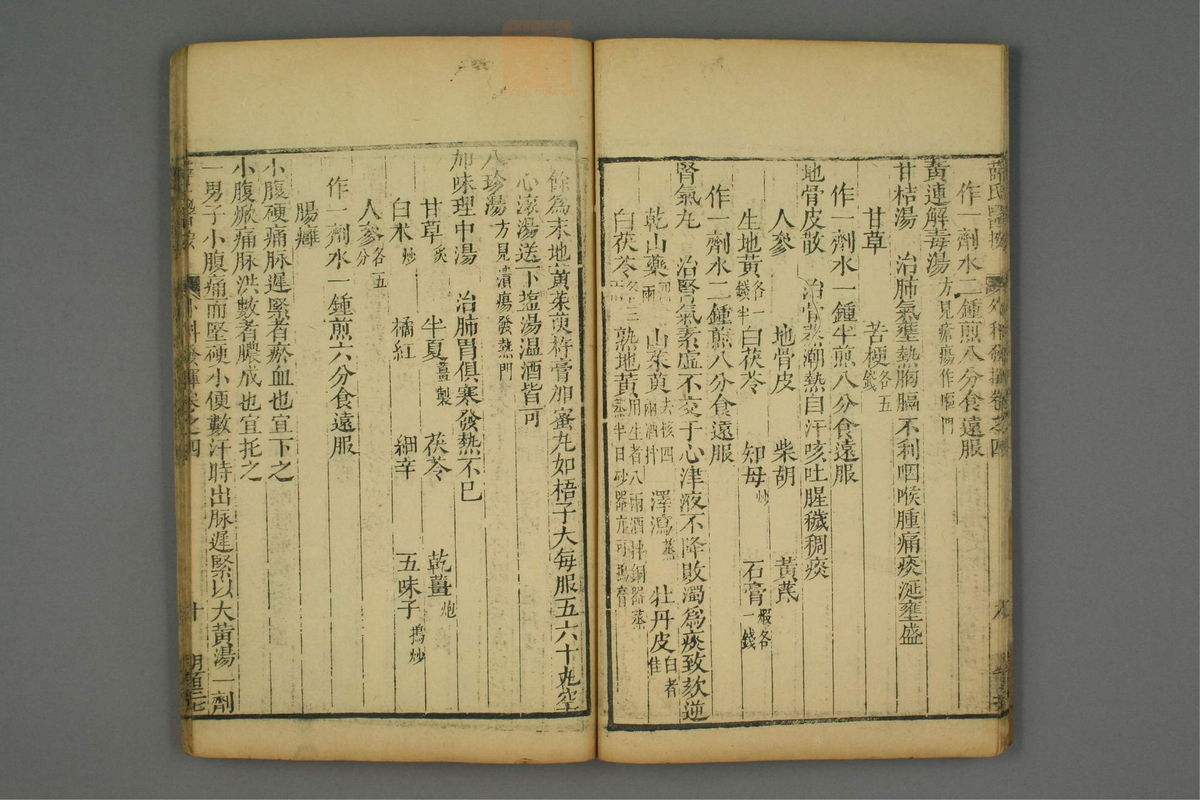 作一劑水二鍾煎八分食遠服
黃連解毒湯方見瘡瘍作嘔門
甘桔湯　治肺氣壅熱胸膈不利咽喉腫痛痰涎壅盛
甘草　苦梗各五錢
作一劑水一鍾半煎八分食遠服
地骨皮散　治骨蒸潮熱自汗咳吐腥穢稠痰
人參　地骨皮　柴胡　黃芪
生地黃各一錢半　白茯苓　知母炒　石膏煅各一錢
作一劑水二鍾煎八分食遠服
腎氣丸　治腎氣素虛不交于心津液不降敗濁爲痰致欬逆
乾山藥　山茱萸去核四兩酒拌　澤瀉蒸　牡丹皮白者佳
白茯苓各三　熟地黃用生者八兩酒拌銅器蒸半日砂器亦可搗膏
餘爲末地黃茱萸杵膏加蜜丸如梧子大每服五六十丸空
心滾湯送下鹽湯溫酒皆可
八珍湯方見潰瘍發熱門
加味理中湯　治肺胃俱寒發熱不已
甘草炙　半夏薑製　茯苓　乾薑炮
白朮炒　橘紅　細辛　五味子搗炒
人參各五分
作一劑水一鍾煎六分食遠服
腸癰
小腹硬痛脉遲緊者瘀血也宜下之
小腹㽲痛脉洪數者膿成也宜托之
一男子小腹痛而堅硬小便數汗時出脉遲緊以大黃湯一劑
外科發揮卷之四
十